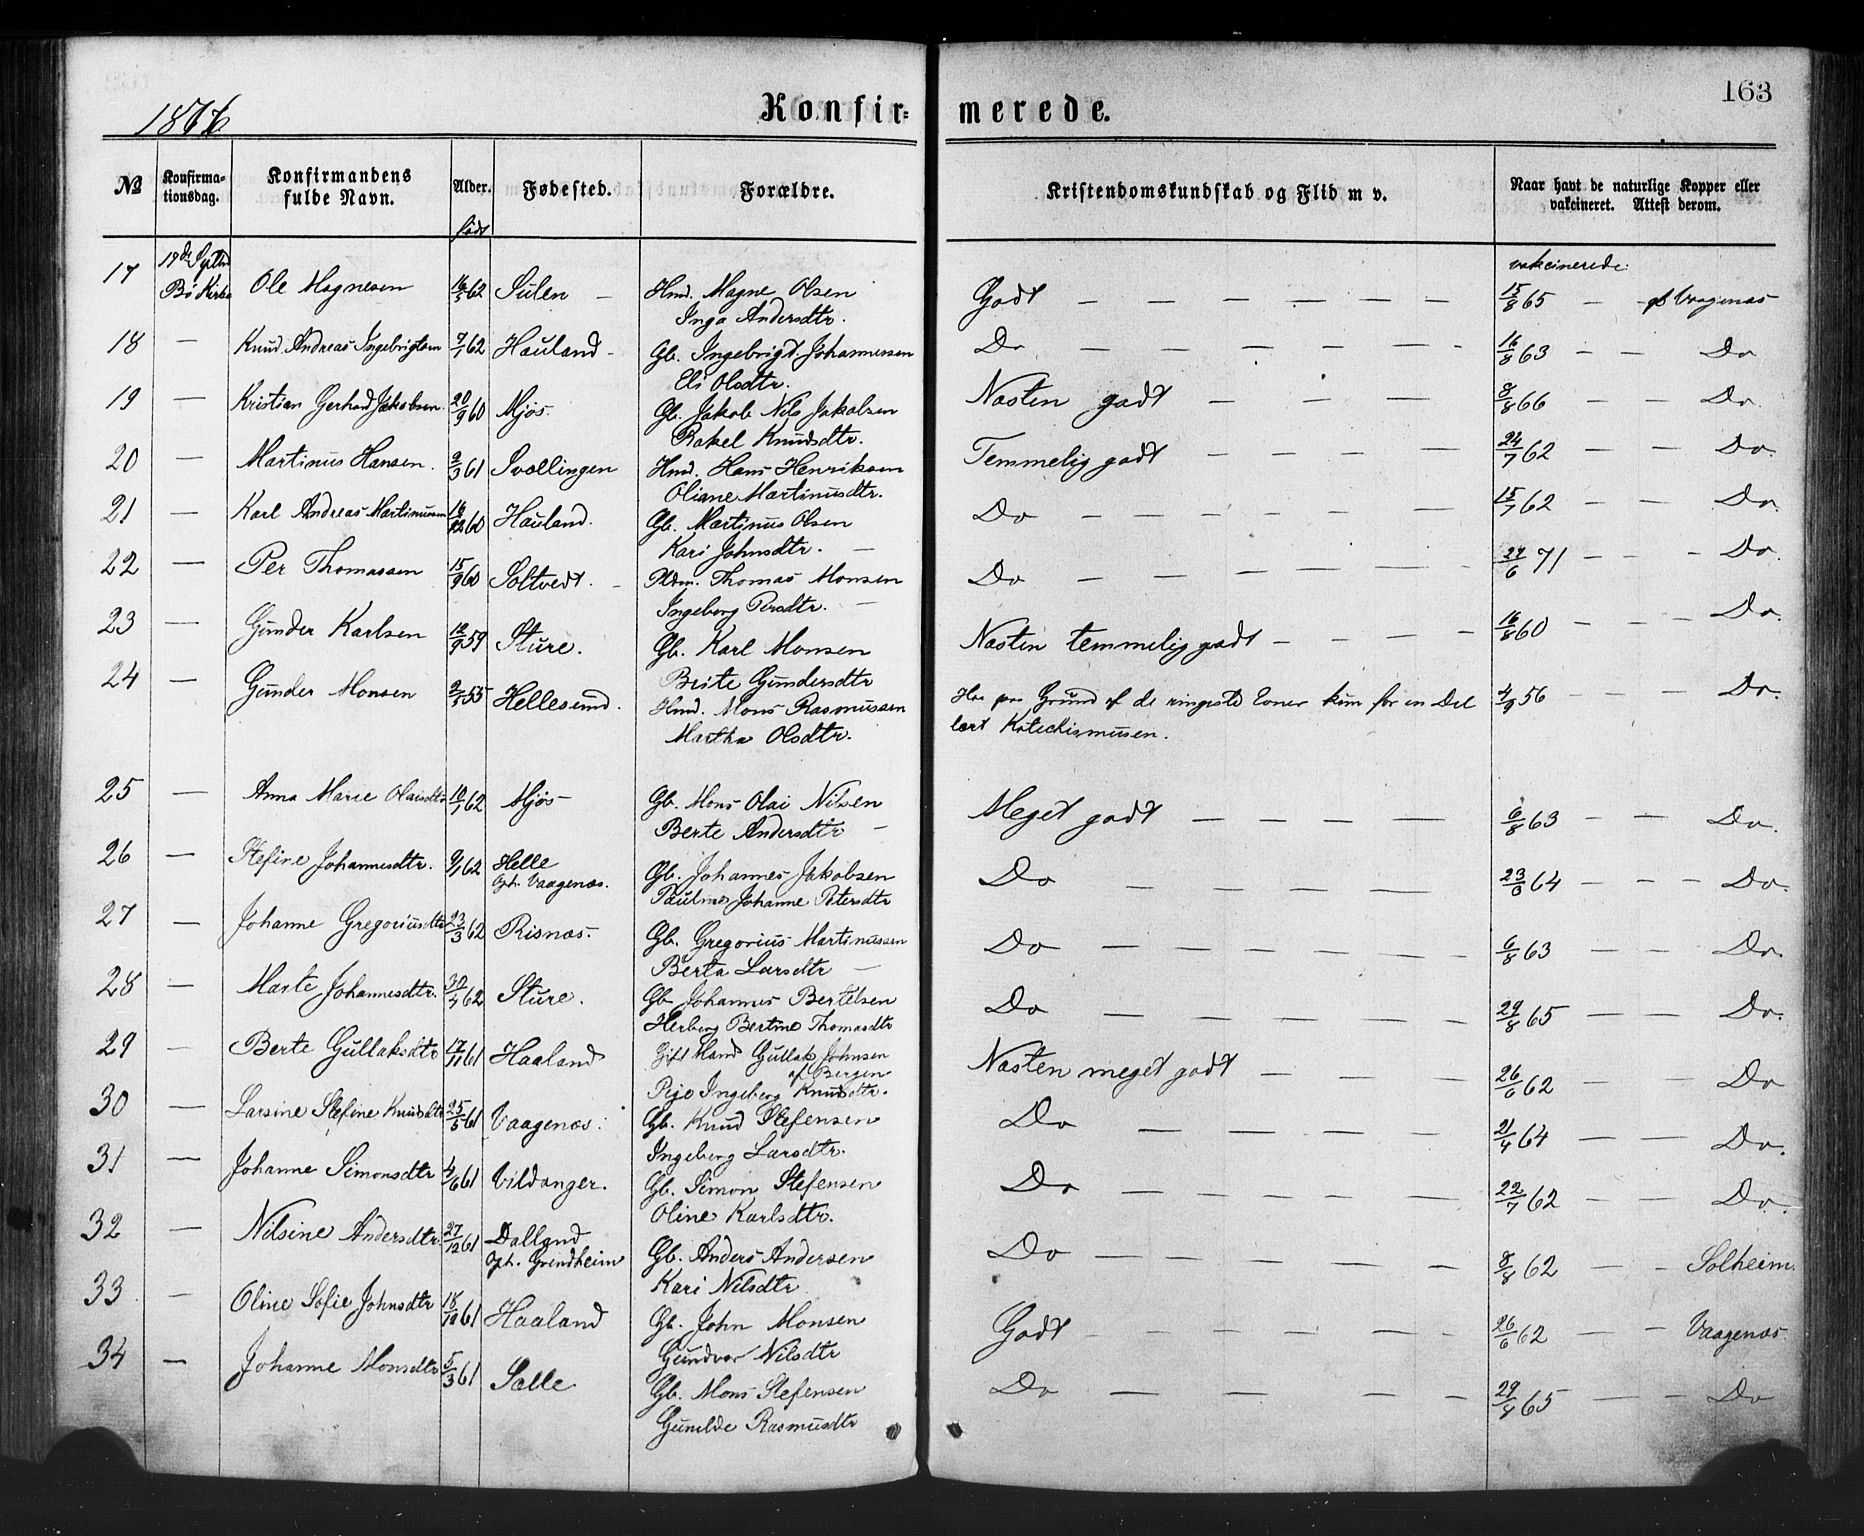 163
1876 Konfirmerede.
№ Konfirmationsdag. Konfirmandens fulde Navn. Alder. født Fødested. Forældre. Kristendomskundskab og Flid m v. Naar havt de naturlige Kopper eller vakcineret. Attest derom.
17 17de Septbr Bø Kirke Ole Magnesen 16/5 62 Sulen — Hmd. Magne Olsen Godt — vakcinerede 15/8 65 — af Vaagenæs
Inga Andersdtr.
18 — Knud Andreas Ingebrigtsen 7/1 62 Hauland — Gb. Ingebrigt Johannessen Do — 16/8 63 — Do
Eli Olsdtr.
19 — Kristian Gerhard Jakobsen 20/9 60 Mjøs. Gb. Jakob Nils Jakobsen Næsten godt — 8/8 66 — Do.
Rakel Knudsdtr.
20 — Martinus Hansen. 2/3 61 Svollingen Hmd. Hans Henriksen Temmelig godt — 24/7 62 — Do.
Oliane Martinusdtr.
21 — Karl Andreas Martinussen 16/12 60 Hauland. Gb. Martinus Olsen Do — 15/7 62 — Do.
Kari Johnsdtr. —
22 — Per Thomassen 15/9 60 Soltvedt. — Thomas Monsen Do — 27/6 71 — Do.
Ingeborg Persdtr. —
23 — Gunder Karlsen 12/9 59 Sture. Gb. Karl Monsen Næsten temmelig godt — 16/8 60 — Do.
Brite Gundersdtr
24 — Gunder Monsen 2/1 55 Hellesund. Hmd. Mons Rasmussen Har paa Grund af de ringeste Evner kun for en Del 4/9 56 — Do.
Martha Olsdtr. lært Katechismusen.
25 — Anna Marie Olaisdtr 10/1 62 Mjøs — Gb. Mons Olai Nilsen Meget godt — 6/8 63 — Do.
Berte Andersdtr —
26 — Stefine Johannesdtr. 9/1 62 Helle Gb. Johannes Jakobsen Do — 23/6 64 — Do.
Oph. Vaagenæs. Pauline Johanne Petersdtr
27 — Johanne Gregoriusdtr 23/3 62 Risnæs. Gb. Gregorius Martinussen Do — 6/8 63 — Do.
Berta Larsdtr —
28 — Marte Johannesdtr. 30/4 62 Sture. Gb. Johannes Bertelsen Do — 29/8 65 — Do.
Herborg Bertine Thomasdtr
29 — Berte Gullaksdtr 17/11 61 Haaland Gift Mand Gullak Johnsen Næsten meget godt — 26/6 62 — Do
af Bergen
Pige Ingeborg Knudsdtr.
30 — Larsine Stefine Knudsdtr 25/5 61 Vaagenæs. Gb. Knud Stefensen Do — 21/4 64 — Do.
Ingeborg Larsdtr.
31 — Johanne Simonsdtr 4/6 61 Vildanger. Gb. Simon Stefensen Do — 22/7 62 — Do.
Oline Karlsdtr.
32 — Nilsine Andersdtr. 27/12 61 Dalland Gb. Anders Andersen Do — 8/8 62 — Solheim.
Oph. Grindheim Kari Nilsdtr
33 — Oline Sofie Johnsdtr 18/12 61 Haaland Gb. John Monsen Godt — 26/6 62 — Vaagenæs.
Gundvor Nilsdtr
34 — Johanne Monsdtr 5/3 61 Sælle Gb. Mons Stefensen Do — 29/8 65 — Do
Gunilde Rasmusdtr